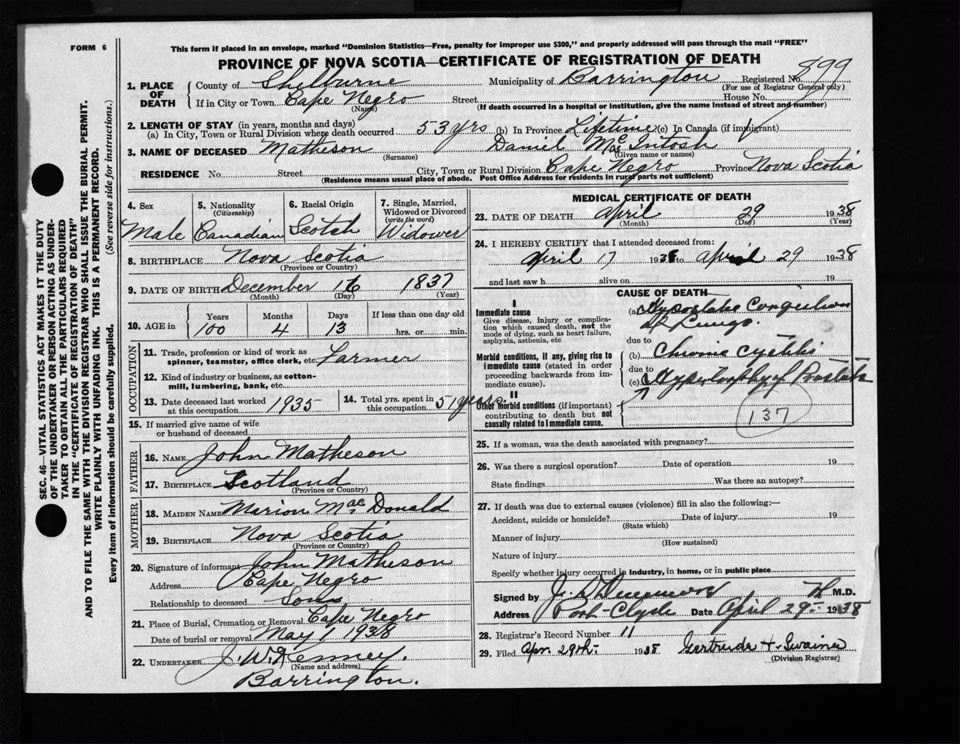 FORM 6
This form if placed in an envelope, marked "Dominion Statistics—Free, penalty for improper use $300," and properly addressed will pass through the mail "FREE"
PROVINCE OF NOVA SCOTIA—CERTIFICATE OF REGISTRATION OF DEATH
1. PLACE OF DEATH
County of Shelburne Municipality of Barrington Registered No. 899
(For use of Registrar General only)
If in City or Town Cape Negro Street House No.
(Name) (If death occurred in a hospital or institution, give the name instead of street and number)
2. LENGTH OF STAY (in years, months and days)
(a) In City, Town or Rural Division where death occurred 53 yrs (b) In Province Lifetime (c) In Canada (if immigrant)
3. NAME OF DECEASED Matheson Daniel MacIntosh
(Surname) (Given name or names)
RESIDENCE No. Street City, Town or Rural Division Cape Negro Province Nova Scotia
(Residence means usual place of abode. Post Office Address for residents in rural parts not sufficient)
4. Sex
Male
5. Nationality (Citizenship)
Canadian
6. Racial Origin
Scotch
7. Single, Married, Widowed or Divorced (write the word)
Widower
8. BIRTHPLACE Nova Scotia
(Province or Country)
9. DATE OF BIRTH December 16 1837
(Month) (Day) (Year)
10. AGE in
Years Months Days If less than one day old
100 4 13 hrs. or min.
OCCUPATION
11. Trade, profession or kind of work as spinner, teamster, office clerk, etc. Farmer
12. Kind of industry or business, as cotton-mill, lumbering, bank, etc.
13. Date deceased last worked at this occupation 1935
14. Total yrs. spent in this occupation 51 years
15. If married give name of wife or husband of deceased
FATHER
16. NAME John Matheson
17. BIRTHPLACE Scotland
(Province or Country)
MOTHER
18. MAIDEN NAME Marion MacDonald
19. BIRTHPLACE Nova Scotia
(Province or Country)
20. Signature of informant John Matheson
Address Cape Negro
Relationship to deceased Son
21. Place of Burial, Cremation or Removal Cape Negro
Date of burial or removal May 1 1938
22. UNDERTAKER J. W. Kenney.
(Name and address)
Barrington.
MEDICAL CERTIFICATE OF DEATH
23. DATE OF DEATH April 29 1938
(Month) (Day) (Year)
24. I HEREBY CERTIFY that I attended deceased from:
April 17 1938 to April 29 1938
and last saw h alive on 19
CAUSE OF DEATH
I
Immediate cause
Give disease, injury or complication which caused death, not the mode of dying, such as heart failure, asphyxia, asthenia, etc
(a) Hypostatic Congestion of Lungs.
due to
Morbid conditions, if any, giving rise to immediate cause (stated in order proceeding backwards from immediate cause).
(b) Chronic cystitis
due to
(c) Hypertrophy of Prostate
II
Other morbid conditions (if important) contributing to death but not causally related to immediate cause.
137
25. If a woman, was the death associated with pregnancy?
26. Was there a surgical operation? Date of operation 19
State findings Was there an autopsy?
27. If death was due to external causes (violence) fill in also the following:—
Accident, suicide or homicide? Date of injury 19
(State which)
Manner of injury
(How sustained)
Nature of injury
Specify whether injury occurred in industry, in home, or in public place
Signed by M.D.
Address Port-Clyde Date April 29 1938
28. Registrar's Record Number 11
29. Filed Apr. 29th. 1938 Gertrude H. Swaine
(Division Registrar)
SEC. 46—VITAL STATISTICS ACT MAKES IT THE DUTY
OF THE UNDERTAKER OR PERSON ACTING AS UNDER-
TAKER TO OBTAIN ALL THE PARTICULARS REQUIRED
IN THE "CERTIFICATE OF REGISTRATION OF DEATH"
AND TO FILE THE SAME WITH THE DIVISION REGISTRAR WHO SHALL ISSUE THE BURIAL PERMIT.
WRITE PLAINLY WITH UNFADING INK. THIS IS A PERMANENT RECORD.
Every item of information should be carefully supplied. (See reverse side for instructions.)